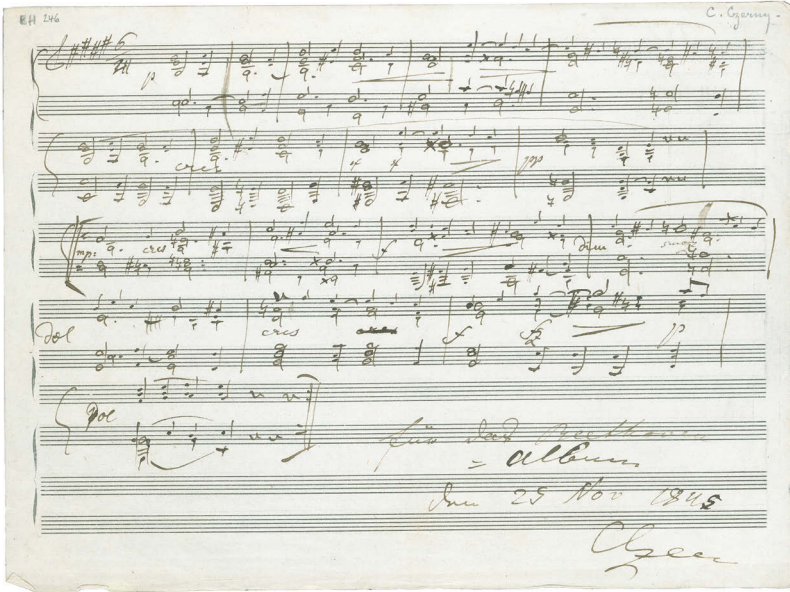 BH 246
C. Czerny.
p
cres
pp
mp: cres f dim
dol cres f p
Dol
für das Beethoven
= album
den 25 Nov 1845
Czerny